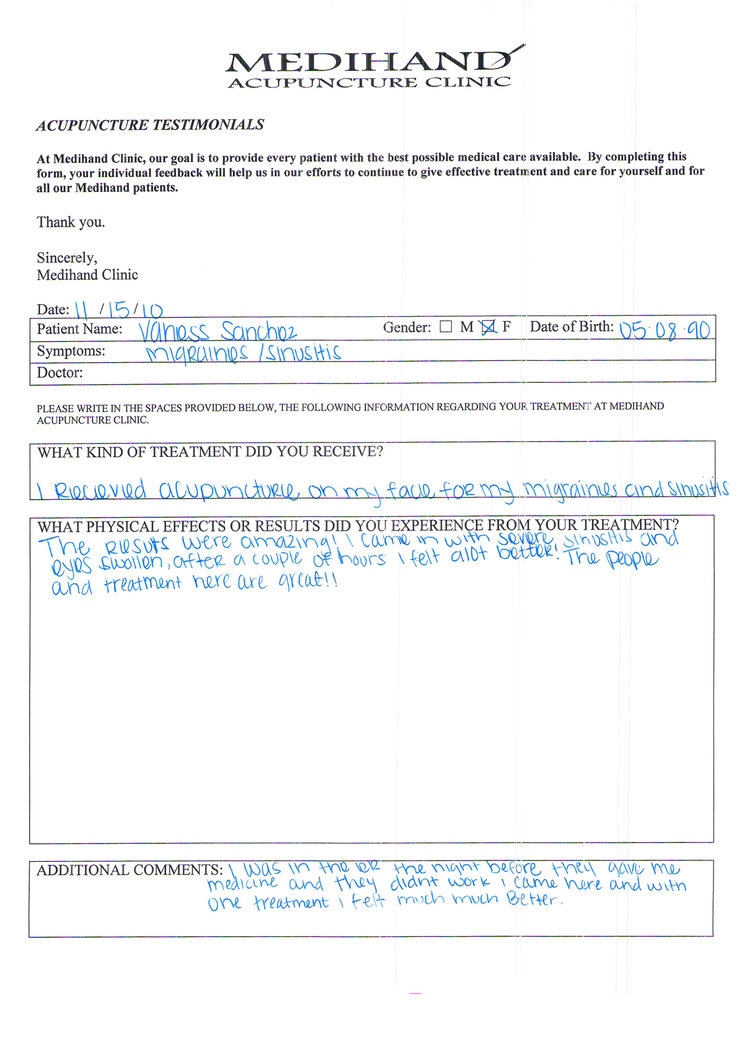 MEDIHAND
ACUPUNCTURE CLINIC
ACUPUNCTURE TESTIMONIALS
At Medihand Clinic, our goal is to provide every patient with the best possible medical care available. By completing this
form, your individual feedback will help us in our efforts to continue to give effective treatment and care for yourself and for
all our Medihand patients.
Thank you.
Sincerely,
Medihand Clinic
Date: 11/15/10
Patient Name: Vaness Sanchez Gender: ☐ M ☒ F Date of Birth: 05.08.90
Symptoms: Migraines/sinusitis
Doctor:
PLEASE WRITE IN THE SPACES PROVIDED BELOW, THE FOLLOWING INFORMATION REGARDING YOUR TREATMENT AT MEDIHAND
ACUPUNCTURE CLINIC.
WHAT KIND OF TREATMENT DID YOU RECEIVE?
I Recieved acupuncture on my face for my migraines and sinusitis
WHAT PHYSICAL EFFECTS OR RESULTS DID YOU EXPERIENCE FROM YOUR TREATMENT?
The Resuts were amazing! I came in with severe sinusitis and
eyes swollen, after a couple of hours I felt alot better! The people
and treatment here are great!!
ADDITIONAL COMMENTS: I was in the ER the night before they gave me
medicine and they didnt work I came here and with
one treatment I felt much much Better.